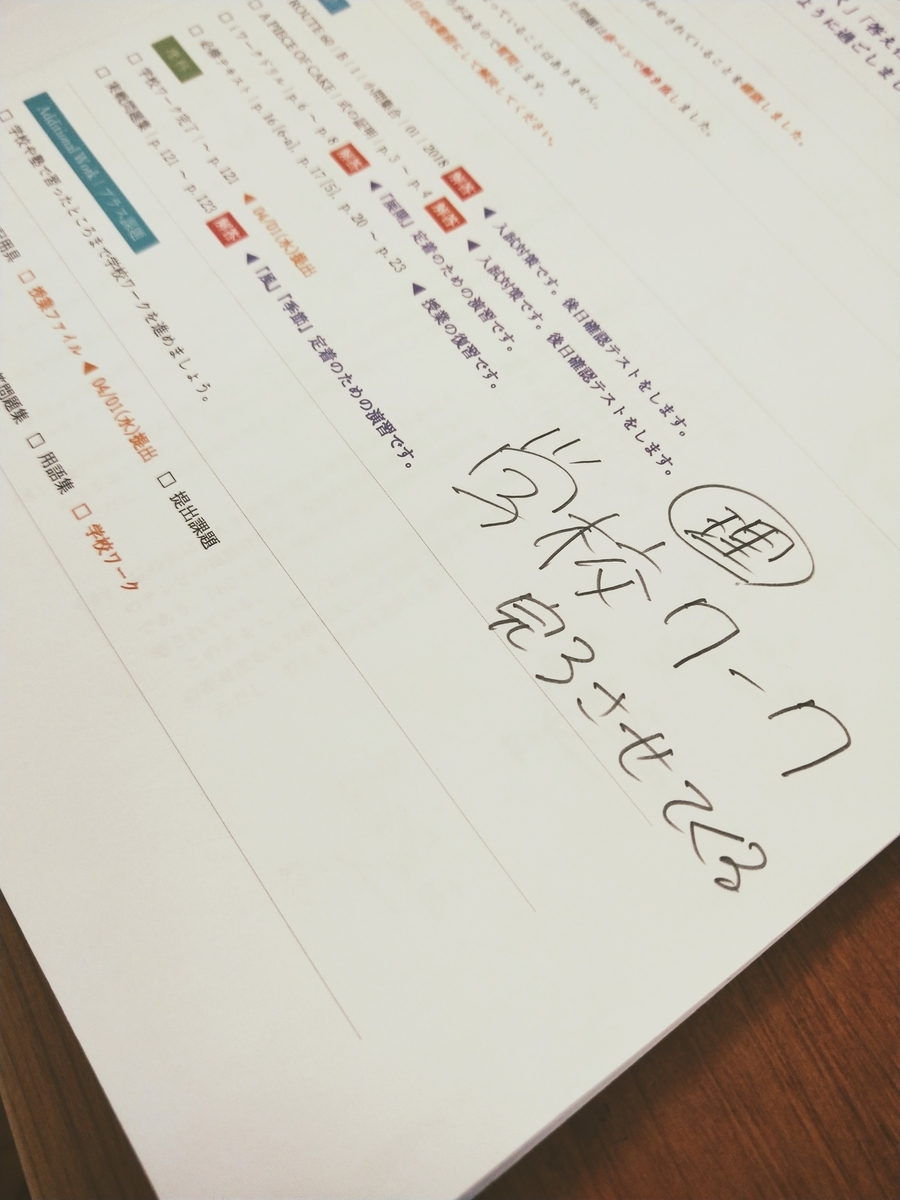 ように過ごしまし
かされていることを確認しました。
べて解き直しました。
っていることはありません。
してください。
ROUTE 60 | B | 1 | 小問集合 | 01 | 2018 解答 ◀ 入試対策です。後日確認テストをします。
A PIECE OF CAKE | 式の証明 | p. 3 ~ p. 4 解答 ◀ 入試対策です。後日確認テストをします。
□ | ワークドリル | p. 6 ~ p. 8 解答 ◀ 『展開』定着のための演習です。
□ 必修テキスト | p. 16 [6-8], p. 17 [5], p. 20 ~ p. 23 ◀ 授業の復習です。
理科
□ 学校ワーク完了 | ~ p. 121 ◀ 04/01(水)提出
□ 実戦問題集 | p. 121 ~ p. 123 解答 ◀ 『風』『季節』定着のための演習です。
Additional Work | プラス課題
□ 学校や塾で習ったところまで学校ワークを進めましょう。
□ 授業ファイル ◀ 04/01(水)提出 □ 提出課題
問題集 □ 用語集 □ 学校ワーク
理
学校ワーク
完了させてくる